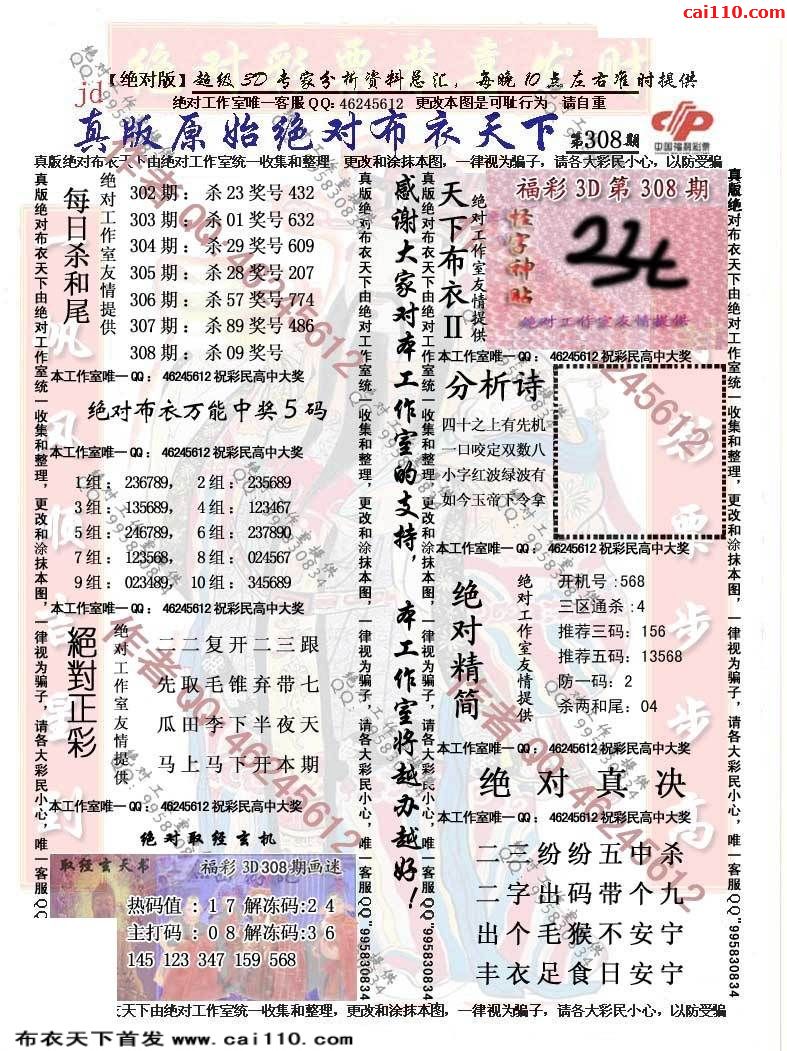 cai110.com
绝对彩票恭喜发财
【绝对版】超级3D专家分析资料总汇，每晚10点左右准时提供
jd
绝对工作室唯一客服QQ: 46245612 更改本图是可耻行为 请自重
真版原始绝对布衣天下 第308期
中国福利彩票
真版绝对布衣天下由绝对工作室统一收集和整理，更改和涂抹本图，一律视为骗子，请各大彩民小心，以防受骗
每日杀和尾
绝对工作室友情提供
302期：杀23奖号432
303期：杀01奖号632
304期：杀29奖号609
305期：杀28奖号207
306期：杀57奖号774
307期：杀89奖号486
308期：杀09奖号
本工作室唯一QQ：46245612祝彩民高中大奖
绝对布衣万能中奖5码
本工作室唯一QQ：46245612祝彩民高中大奖
1组：236789， 2组：235689
3组：135689， 4组：123467
5组：246789， 6组：237890
7组：123568， 8组：024567
9组：023489， 10组：345689
本工作室唯一QQ：46245612祝彩民高中大奖
絕對正彩
绝对工作室友情提供
二二复开二三跟
先取毛锥弃带七
瓜田李下半夜天
马上马下开本期
本工作室唯一QQ：46245612祝彩民高中大奖
绝对取经玄机
取经玄天书 福彩3D308期画迷
热码值：17解冻码:24
主打码：08解冻码:36
145 123 347 159 568
感谢大家对本工作室的支持，本工作室将越办越好！
天下布衣II
绝对工作室友情提供
福彩3D第308期
怪字神贴
绝对工作室友情提供
本工作室唯一QQ：46245612祝彩民高中大奖
分析诗
四十之上有先机
一口咬定双数八
小字红波绿波有
如今玉帝下令拿
本工作室唯一QQ：46245612祝彩民高中大奖
绝对精简
绝对工作室友情提供
开机号:568
三区通杀:4
推荐三码：156
推荐五码：13568
防一码：2
杀两和尾：04
本工作室唯一QQ：46245612祝彩民高中大奖
绝对真决
本工作室唯一QQ：46245612祝彩民高中大奖
二三纷纷五中杀
二字出码带个九
出个毛猴不安宁
丰衣足食日安宁
真版绝对布衣天下由绝对工作室统一收集和整理，更改和涂抹本图，一律视为骗子，请各大彩民小心，唯一客服QQ
真版绝对布衣天下由绝对工作室统一收集和整理，更改和涂抹本图，一律视为骗子，请各大彩民小心，唯一客服QQ"995830834
真版绝对布衣天下由绝对工作室统一收集和整理，更改和涂抹本图，一律视为骗子，请各大彩民小心，唯一客服QQ"995830834
真版绝对布衣天下由绝对工作室统一收集和整理，更改和涂抹本图，一律视为骗子，请各大彩民小心，唯一客服QQ"995830834
衣天下由绝对工作室统一收集和整理，更改和涂抹本图，一律视为骗子，请各大彩民小心，以防受骗
作者QQ:46245612
绝对工作室提供
QQ:995830834
布衣天下首发 www.cai110.com